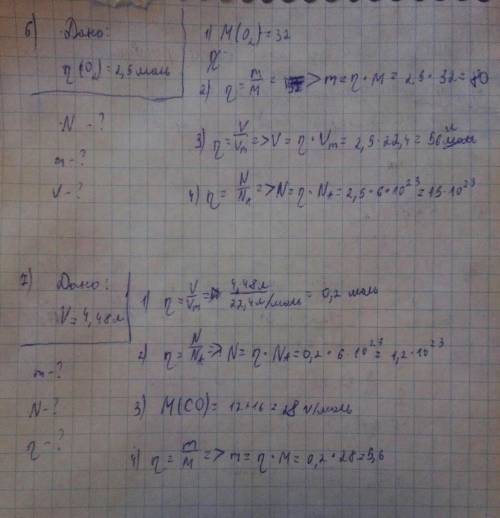 6) Дано:
η(O₂) = 2,5 моль
N - ?
m - ?
V - ?
1) M(O₂) = 32
η
2) η = m/M => m = η · M = 2,5 · 32 = 80
3) η = V/Vm => V = η · Vm = 2,5 · 22,4 = 56 л
4) η = N/NA => N = η · NA = 2,5 · 6 · 10²³ = 15 · 10²³
7) Дано:
V = 4,48 л
m - ?
N - ?
η - ?
1) η = V/Vm = 4,48л/22,4л/моль = 0,2 моль
2) η = N/NA => N = η · NA = 0,2 · 6 · 10²³ = 1,2 · 10²³
3) M(CO) = 12+16 = 28 г/моль
4) η = m/M => m = η · M = 0,2 · 28 = 5,6